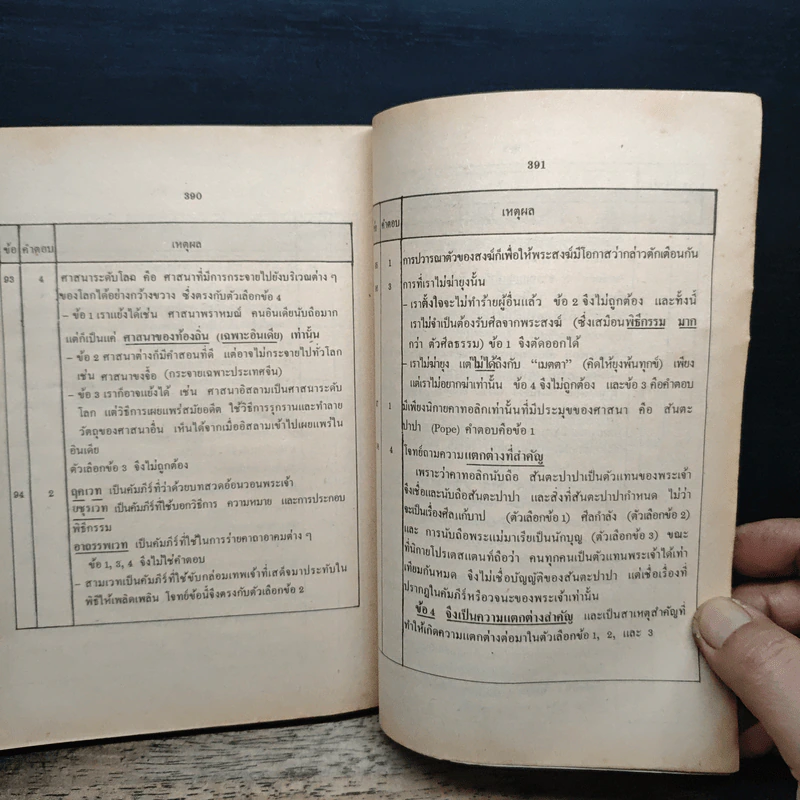 390
ข้อ คำตอบ เหตุผล
93 4 ศาสนาระดับโลก คือ ศาสนาที่มีการกระจายไปยังบริเวณต่าง ๆ
ของโลกได้อย่างกว้างขวาง ซึ่งตรงกับตัวเลือกข้อ 4
– ข้อ 1 เราแย้งได้เช่น ศาสนาพราหมณ์ คนอินเดียนับถือมาก
แต่ก็เป็นแค่ ศาสนาของท้องถิ่น (เฉพาะอินเดีย) เท่านั้น
– ข้อ 2 ศาสนาต่างก็มีคำสอนที่ดี แต่อาจไม่กระจายไปทั่วโลก
เช่น ศาสนาขงจื้อ (กระจายเฉพาะประเทศจีน)
– ข้อ 3 เราก็อาจแย้งได้ เช่น ศาสนาอิสลามเป็นศาสนาระดับ
โลก แต่วิธีการเผยแพร่สมัยอดีต ใช้วิธีการรุกรานและทำลาย
วัตถุของศาสนาอื่น เห็นได้จากเมื่ออิสลามเข้าไปเผยแพร่ใน
อินเดีย
ตัวเลือกข้อ 3 จึงไม่ถูกต้อง
94 2 ฤคเวท เป็นคัมภีร์ที่ว่าด้วยบทสวดอ้อนวอนพระเจ้า
ยชุรเวท เป็นคัมภีร์ที่ใช้บอกวิธีการ ความหมาย และการประกอบ
พิธีกรรม
อาถรรพเวท เป็นคัมภีร์ที่ใช้ในการร่ายคาถาอาคมต่าง ๆ
ข้อ 1, 3, 4 จึงไม่ใช่คำตอบ
– สามเวทเป็นคัมภีร์ที่ใช้ขับกล่อมเทพเจ้าที่เสด็จมาประทับใน
พิธีให้เพลิดเพลิน โจทย์ข้อนี้จึงตรงกับตัวเลือกข้อ 2
391
คำตอบ เหตุผล
1 การปวารณาตัวของสงฆ์ก็เพื่อให้พระสงฆ์มีโอกาสว่ากล่าวตักเตือนกัน
3 การที่เราไม่ฆ่ายุงนั้น
– เราตั้งใจจะไม่ทำร้ายผู้อื่นแล้ว ข้อ 2 จึงไม่ถูกต้อง และทั้งนี้
เราไม่จำเป็นต้องรับศีลจากพระสงฆ์ (ซึ่งเสมือนพิธีกรรม มาก
กว่า ตัวศีลธรรม) ข้อ 1 จึงตัดออกได้
– เราไม่ฆ่ายุง แต่ไม่ได้ถึงกับ “เมตตา” (คิดให้ยุงพ้นทุกข์) เพียง
แต่เราไม่อยากฆ่าเท่านั้น ข้อ 4 จึงไม่ถูกต้อง และข้อ 3 คือคำตอบ
7 1 มีเพียงนิกายคาทอลิกเท่านั้นที่มีประมุขของศาสนา คือ สันตะ
ปาปา (Pope) คำตอบคือข้อ 1
4 โจทย์ถามความแตกต่างที่สำคัญ
เพราะว่าคาทอลิกนับถือ สันตะปาปาเป็นตัวแทนของพระเจ้า
จึงเชื่อและนับถือสันตะปาปา และสิ่งที่สันตะปาปากำหนด ไม่ว่า
จะเป็นเรื่องศีลแก้บาป (ตัวเลือกข้อ 1) ศีลกำลัง (ตัวเลือกข้อ 2)
และ การนับถือพระแม่มาเรียเป็นนักบุญ (ตัวเลือกข้อ 3) ขณะ
ที่นิกายโปรเตสแตนท์ถือว่า คนทุกคนเป็นตัวแทนพระเจ้าได้เท่า
เทียมกันหมด จึงไม่เชื่อบัญญัติของสันตะปาปา แต่เชื่อเรื่องที่
ปรากฏในคัมภีร์หรือวจนะของพระเจ้าเท่านั้น
ข้อ 4 จึงเป็นความแตกต่างสำคัญ และเป็นสาเหตุสำคัญที่
ทำให้เกิดความแตกต่างต่อมาในตัวเลือกข้อ 1, 2, และ 3